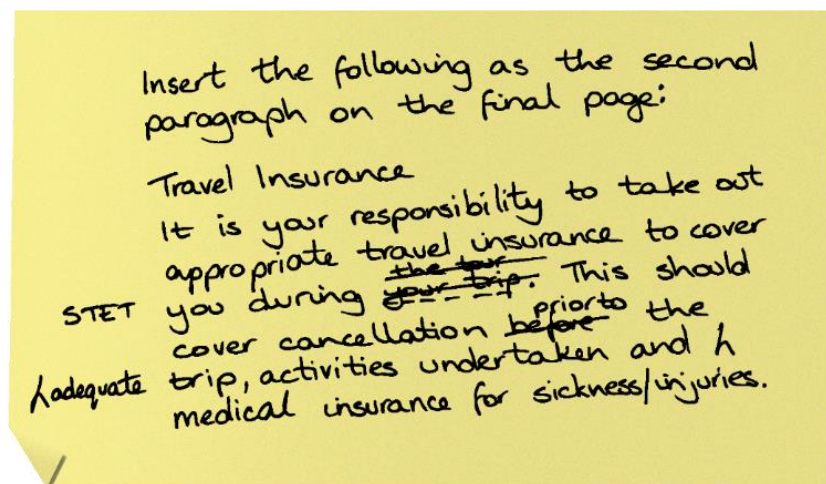 Insert the following as the second
paragraph on the final page:
Travel Insurance
It is your responsibility to take out
appropriate travel insurance to cover
the tour
STET you during your trip. This should
prior to
cover cancellation before the
⁁adequate trip, activities undertaken and ⁁
medical insurance for sickness/injuries.